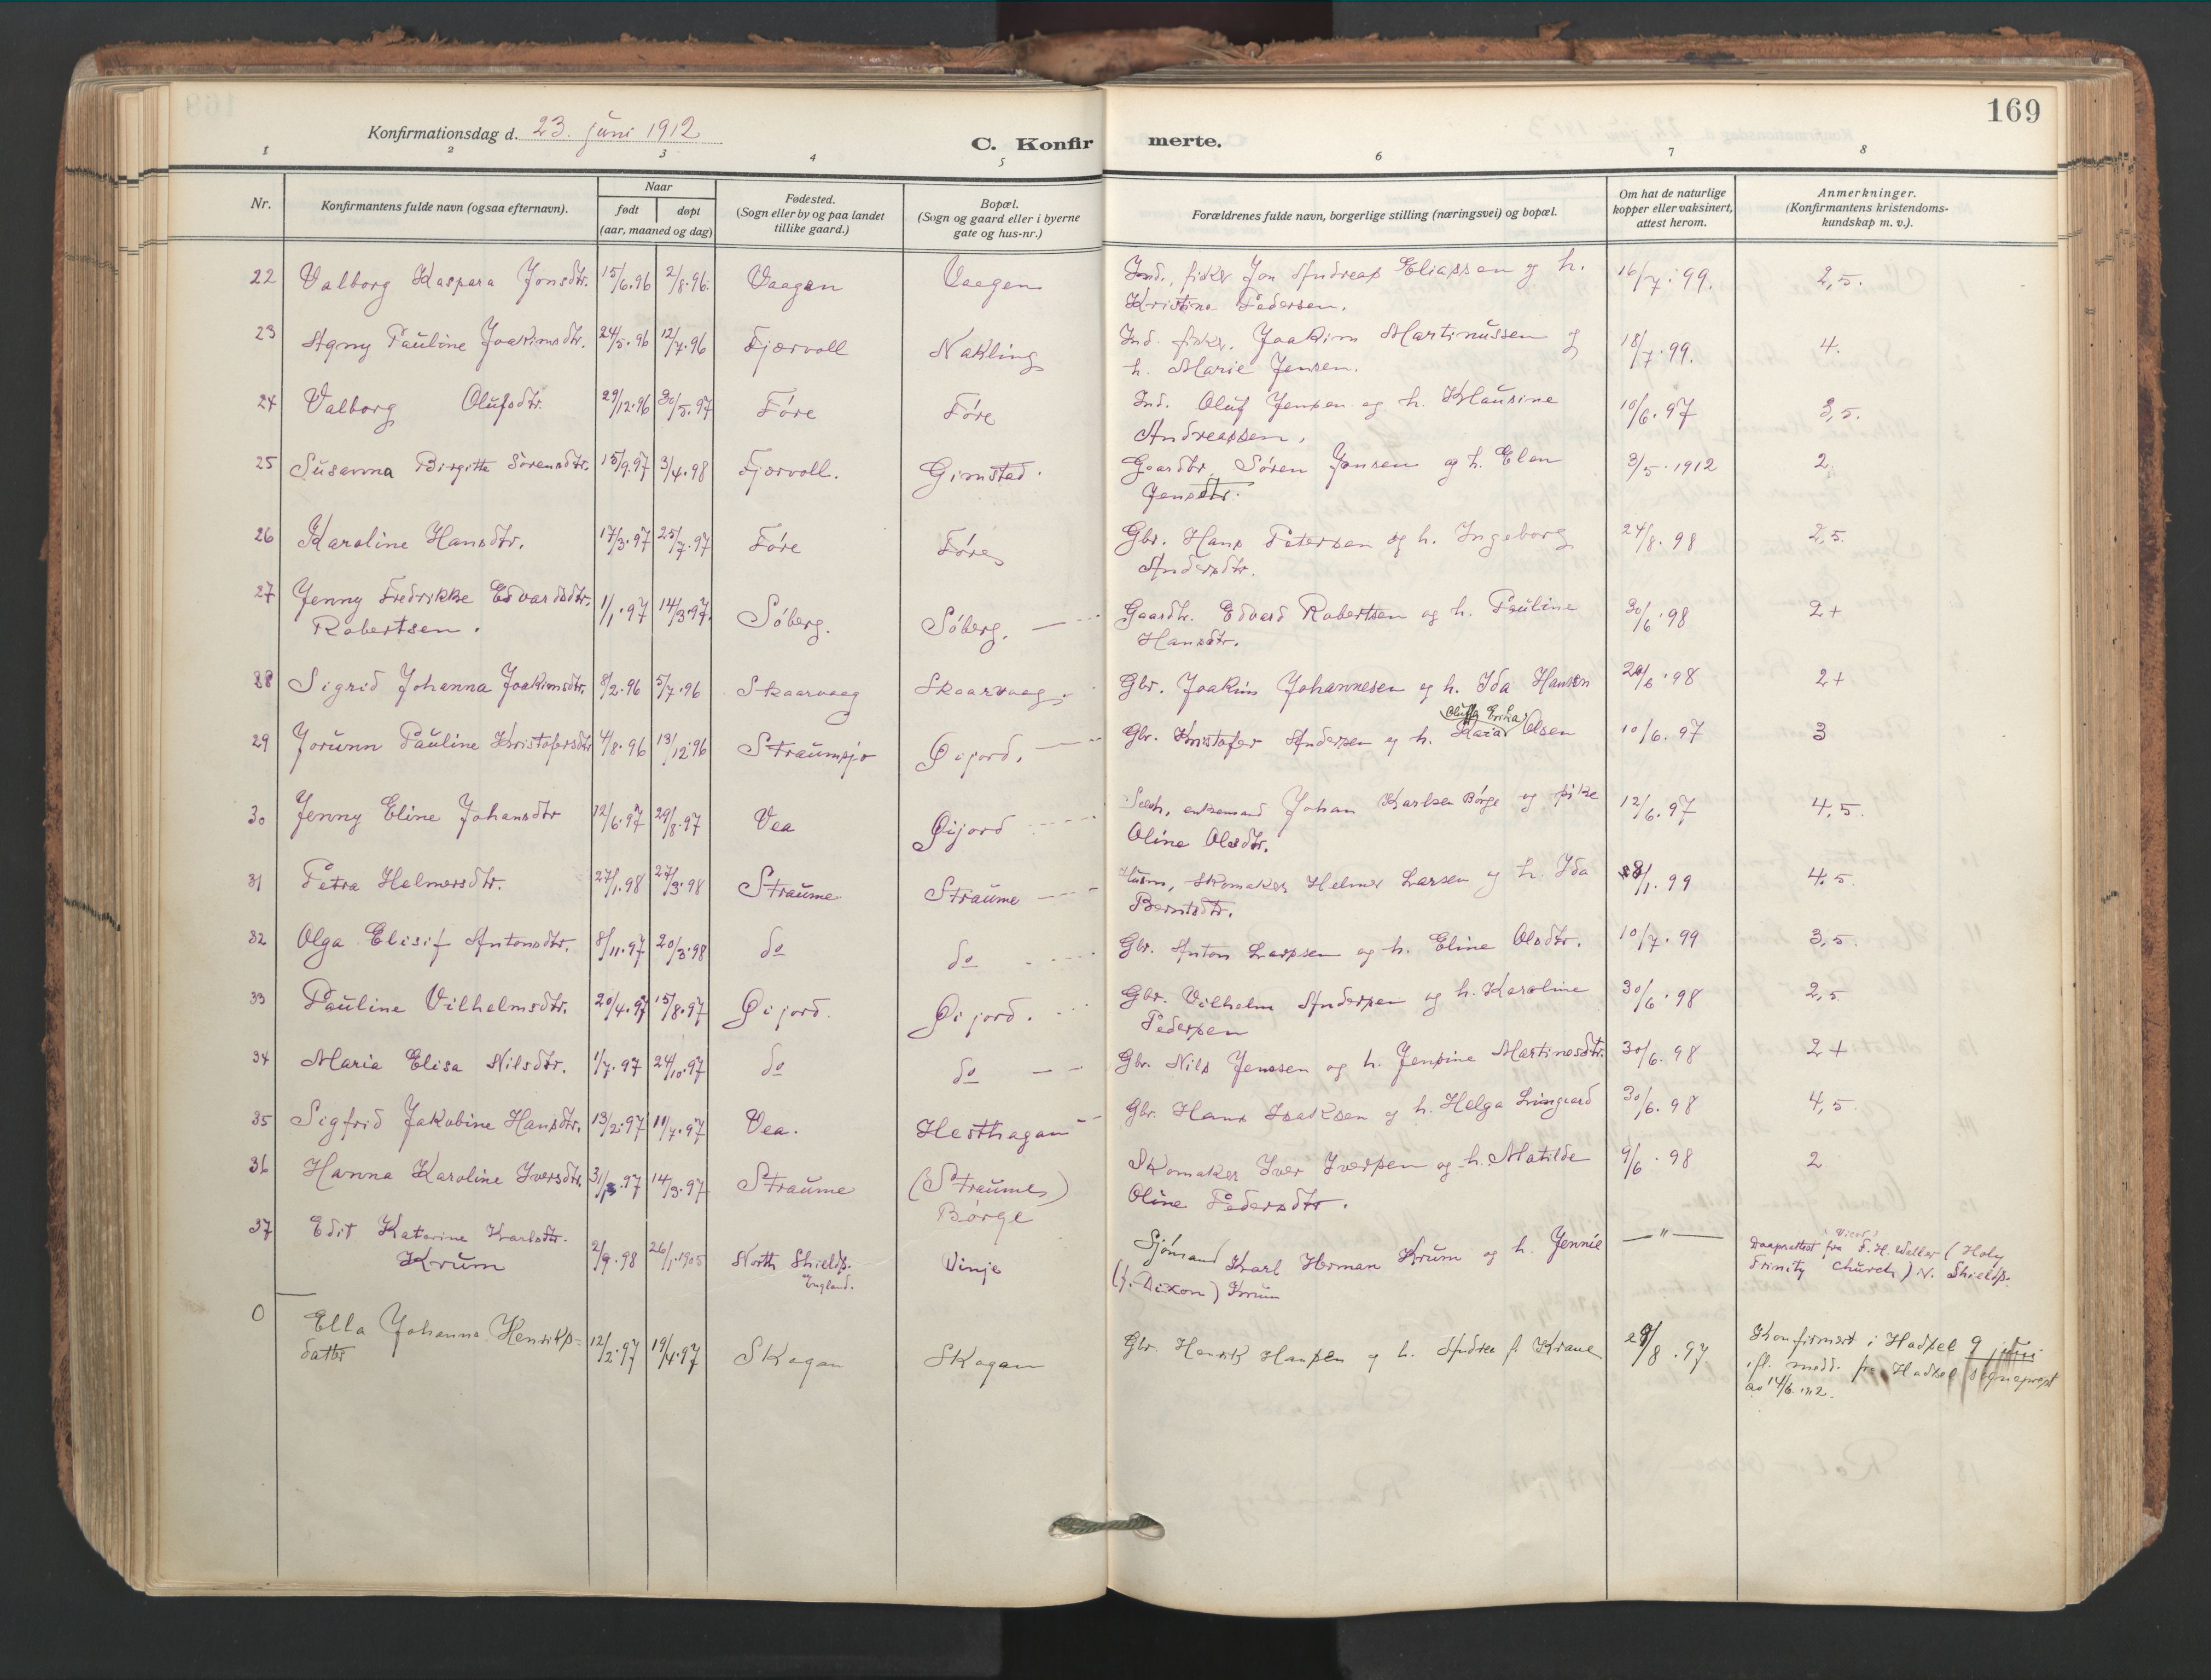 169
Konfirmationsdag d. 23. juni 1912
C. Konfirmerte.
1 2 3 4 5 6 7 8
Nr. | Konfirmantens fulde navn (ogsaa efternavn). | Naar født | døpt (aar, maaned og dag) | Fødested. (Sogn eller by og paa landet tillike gaard.) | Bopæl. (Sogn og gaard eller i byerne gate og hus-nr.) | Forældrenes fulde navn, borgerlige stilling (næringsvei) og bopæl. | Om hat de naturlige kopper eller vaksinert, attest herom. | Anmerkninger. (Konfirmantens kristendoms-kundskap m. v.).
22 Valborg Kaspara Jonsdtr. 15/6.96 2/8.96. Vaagen Vaagen Ind., fisker Jon Andreas Eliassen og h. 16/7.99. 2,5.
Kristine Pedersen.
23 Agny Pauline Joakimsdtr. 24/5.96 12/7.96 Fjærvoll Nakling Ind. fisker. Joakim Martinussen og 18/7.99. 4.
h. Marie Jensen.
24 Valborg Olufsdtr. 29/12.96 30/5.97 Føre Føre Ind. Oluf Jensen og h. Klausine 10/6.97 3,5.
Andreassen.
25 Susanna Birgitte Sørensdtr. 15/9.97 3/4.98 Fjærvoll. Gimstad. Gaardbr. Søren Jensen og h. Elen 3/5.1912 2
Jensdtr.
26 Karoline Hansdtr. 17/3.97 25/7.97 Føre Føre Gbr. Hans Petersen og h. Ingeborg 24/8.98 2,5.
Andersdtr.
27 Jenny Fredrikke Edvardsdtr. 1/1.97 14/3.97. Søberg. Søberg. Gaardbr. Edvard Robertsen og h. Pauline 30/6.98 2+
Robertsen. Hansdtr.
28 Sigrid Johanna Joakimsdtr. 8/2.96 5/7.96 Skaarvaag Skaarvaag. Gbr. Joakim Johannesen og h. Ida Hansen 20/6.98 2+
Oluffa Erika
29 Jorunn Pauline Kristofersdtr 4/8.96 13/12.96 Straumsjø Øijord. Gbr. Kristofer Andersen og h. Kaia Olsen 10/6.97 3
30 Jenny Eline Johansdtr 12/6.97 29/8.97 Vea Øijord enkemand Johan Karlsen Børge og pike 12/6.97 4,5.
Oline Olsdtr.
31 Petra Helmersdtr. 27/1.98 27/3.98 Straume Straume Husm, skomaker Helmer Larsen og h. Ida /1.99 4,5.
Berntsdtr.
32 Olga Elisif Antonsdtr. 8/11.97 20/3.98 do do Gbr. Anton Larssen og h. Eline Olsdtr. 10/7.99 3,5.
33 Pauline Vilhelmsdtr. 20/4.97 15/8.97 Øijord. Øijord. Gbr. Vilhelm Andersen og h. Karoline 30/6.98 2,5
Pedersen
34 Maria Elisa Nilsdtr. 1/7.97 24/10.97 do do Gbr. Nils Jenssen og h. Jensine Martinesdtr. 30/6.98 2+
35 Sigfrid Jakobine Hansdtr. 13/2.97 11/7.97 Vea. Hesthagan Gbr. Hans Isaksen og h. Helga Livsgaard 30/6.98 4,5
36 Hanna Karoline Iversdtr. 31/.97 14/3.97 Straume (Straume) Skomaker Iver Iversen og h. Matilde 9/6.98 2
Børge Oline Pedersdtr.
37 Edit Katerine Karlsdtr. 2/9.98 26/1.1905 North Shields. Vinje Sjømand Karl Herman Krum og h. Jennie — " —
Krum England. (f. Dixon) Krum
Vicar
Daapsattest fra F. H. Weller (Holy
Trinity Church) N. Shields.
0 Ella Johanna Henriks- 12/2.97 19/4.97 Skagan Skagan Gbr. Henrik Hansen og h. Andrea f. Krane 28/8.97
datter
Konfirmert i Hadsel 9 juni
ifl. medd. fra Hadsel sogneprest
av 14/6.1912.